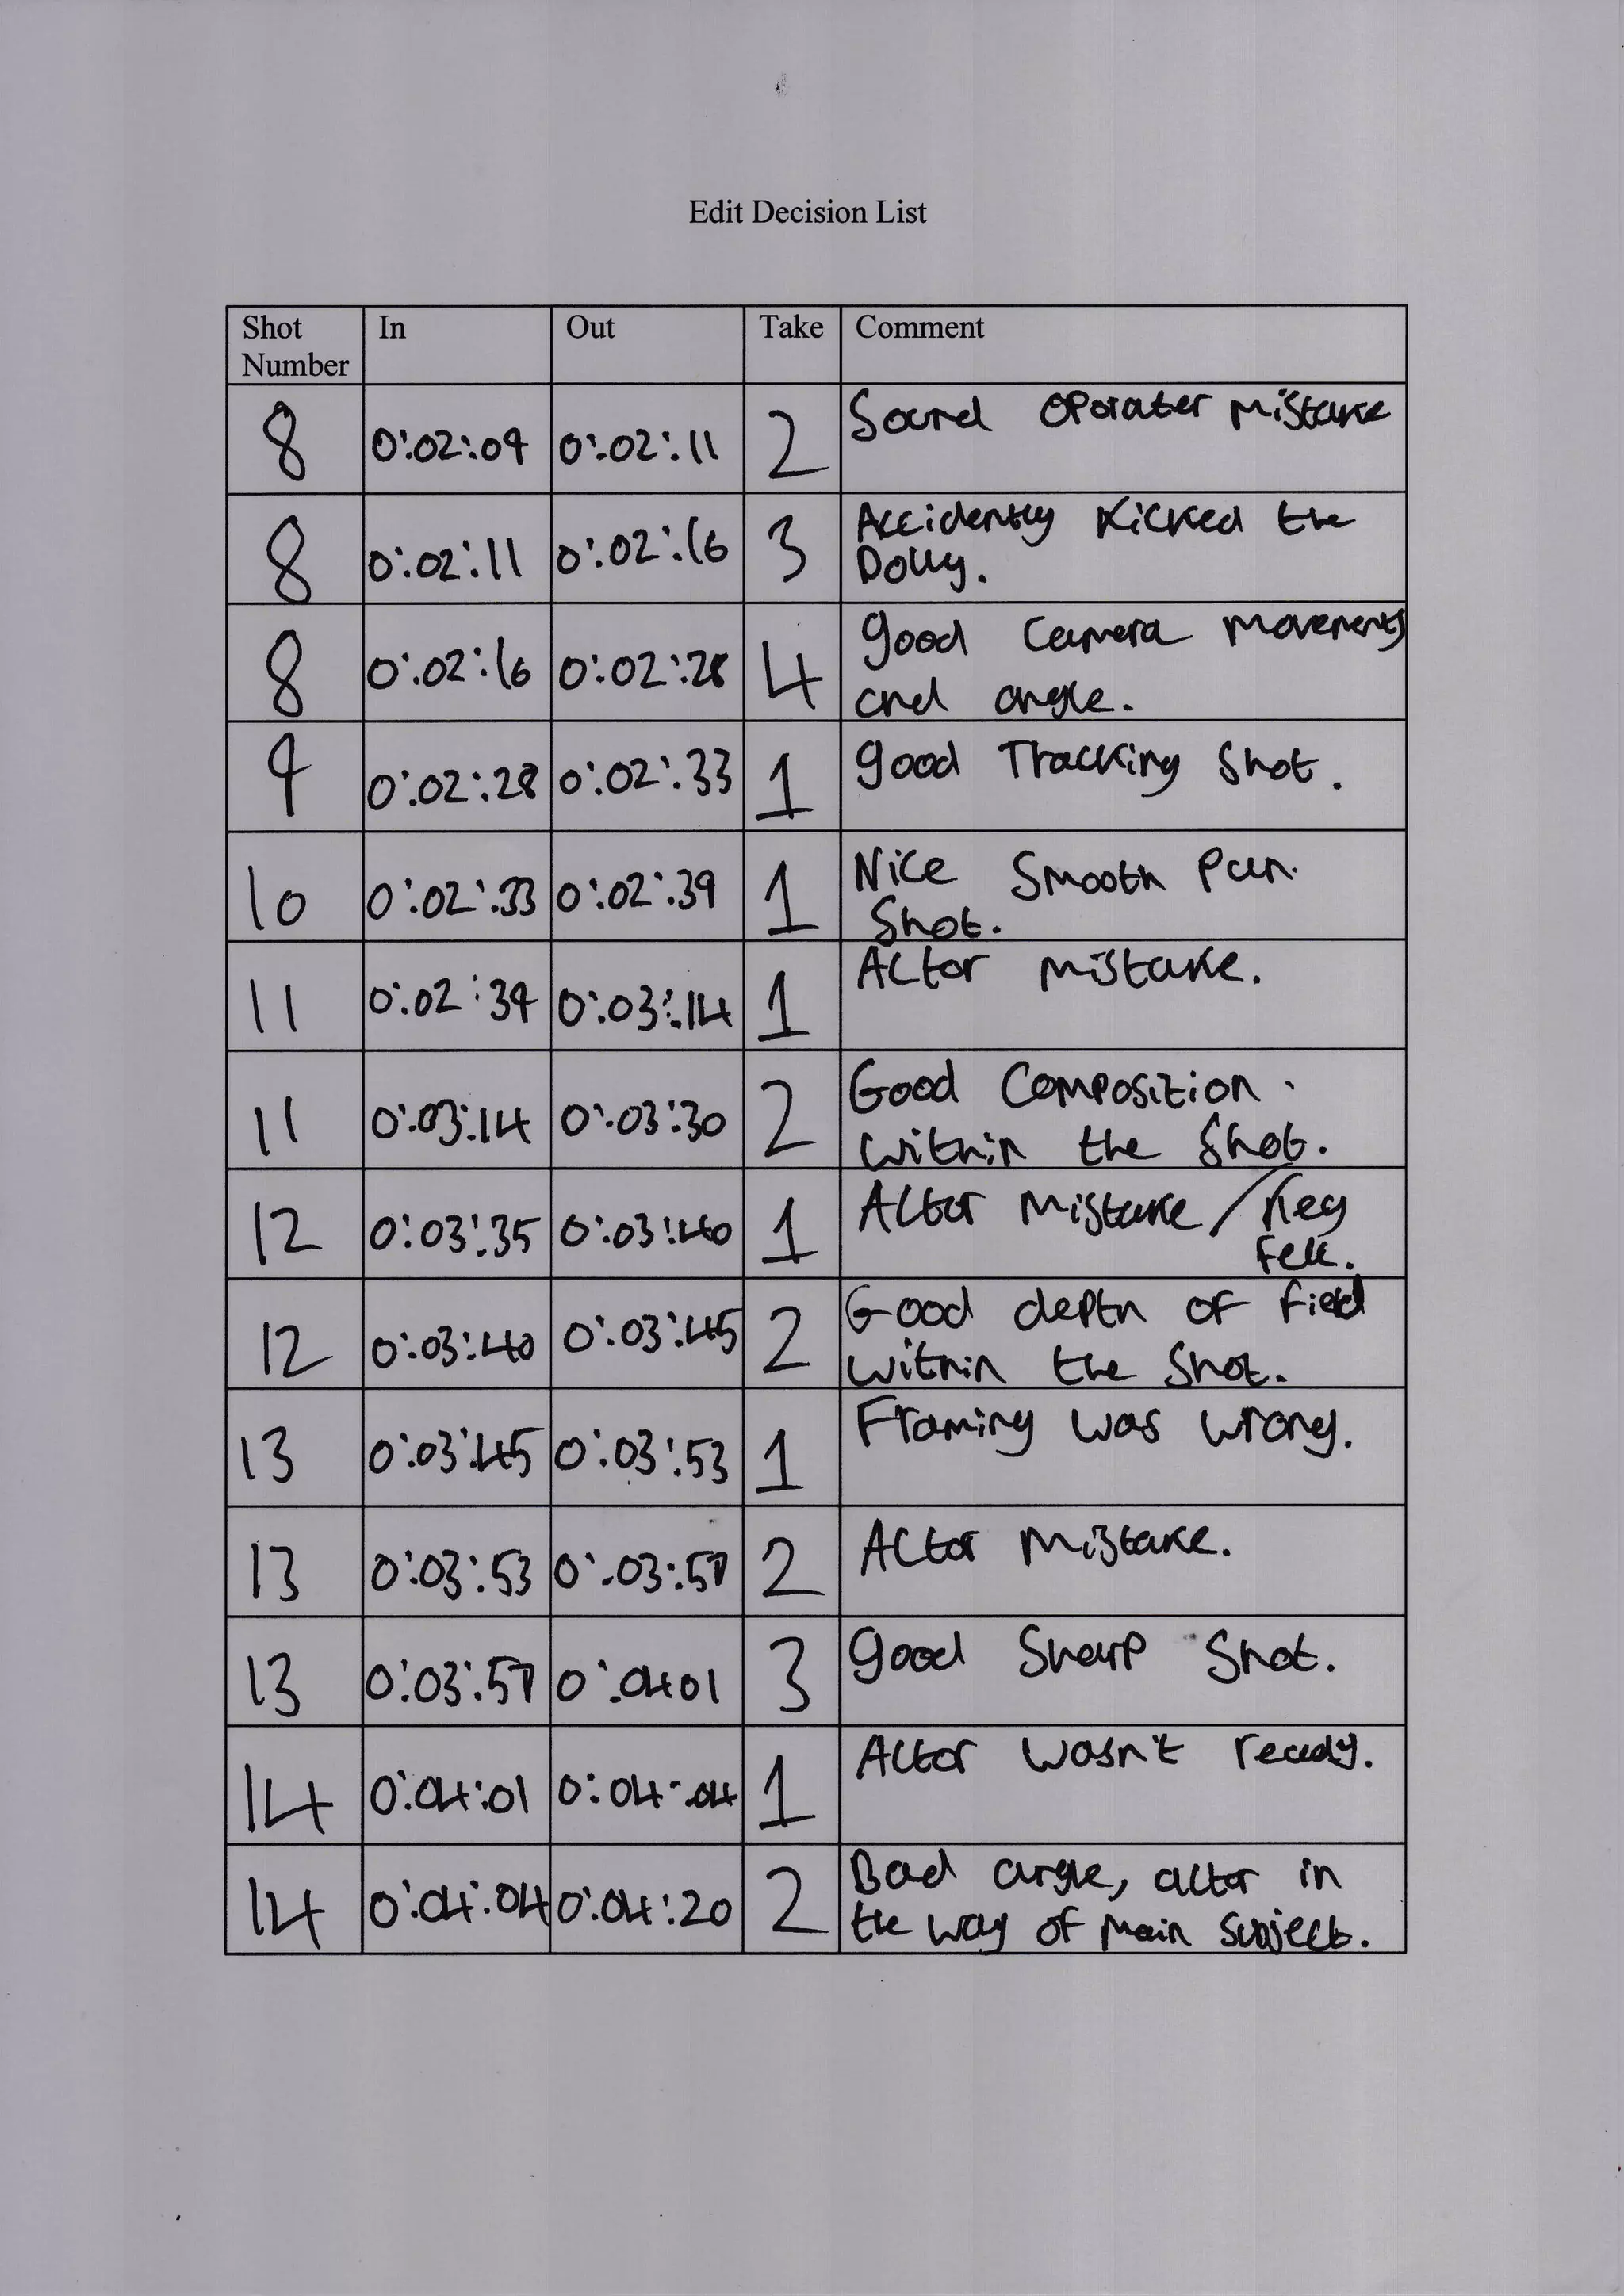 Edit Decision List
Shot Number In Out Take Comment
8 0:02:09 0:02:11 2 Sound Oporater Mistake
8 0:02:11 0:02:16 3 Accidently Kicked the
Dolly.
8 0:02:16 0:02:28 4 good Camera Movements
and angle.
9 0:02:28 0:02:33 1 good Tracking Shot.
10 0:02:33 0:02:39 1 Nice Smooth Pan
Shot.
11 0:02:39 0:03:14 1 Actor Mistake.
11 0:03:14 0:03:30 2 Good Composition
within the Shot.
12 0:03:35 0:03:40 1 Actor Mistake / Key
Fell.
12 0:03:40 0:03:45 2 Good depth of field
within the Shot.
13 0:03:45 0:03:53 1 Framing was wrong.
13 0:03:53 0:03:57 2 Actor Mistake.
13 0:03:57 0:0401 3 good Sharp Shot.
14 0:04:01 0:04:04 1 Actor wasn't ready.
14 0:04:04 0:04:20 2 Bad angle, actor in
the way of Main Subject.